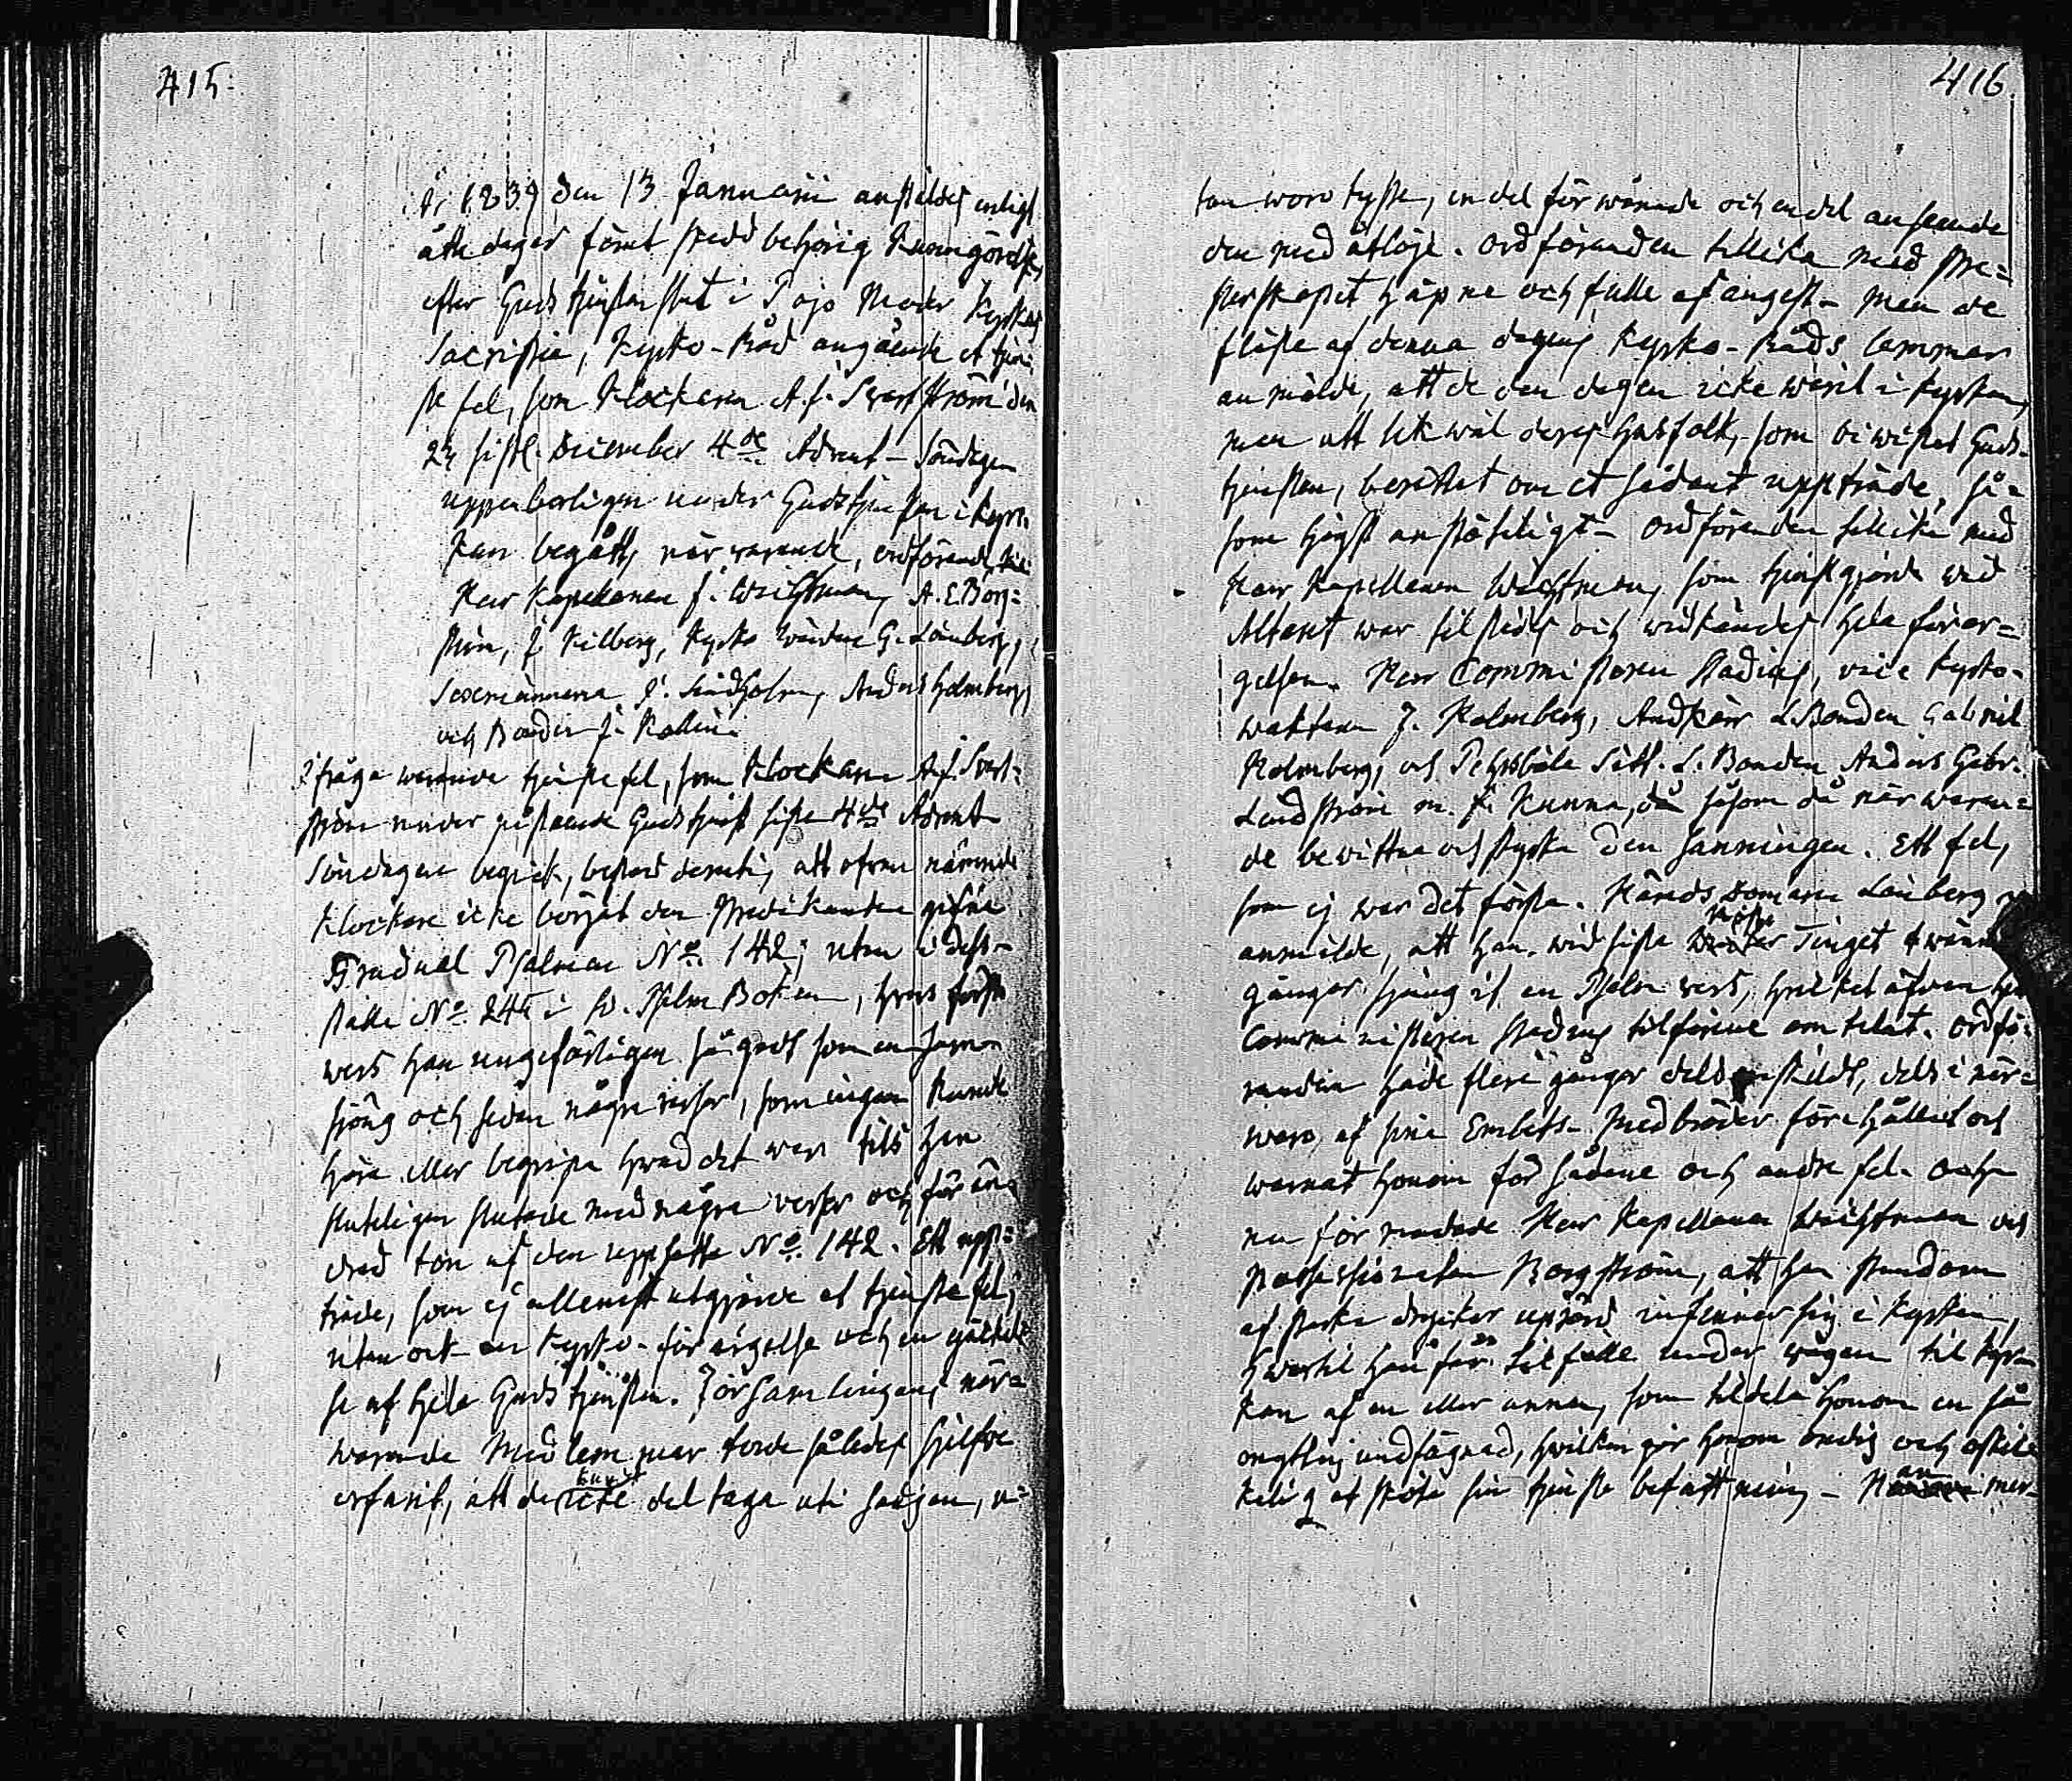 415.
År 1839 den 13 Januarii anstäldes enligt
åtta dagar förut skedd behörig Kungörelse,
efter Gudstjensten slut i Pojo Moder Kyrkas
Sacristia, Kyrko-Råd angående et tjen-
ste fel, som Klockaren A. J. Svartström den
23 sistl. December 4de Advent-Söndagen
uppenbarligen under Gudstjensten i kyr-
kan begått, närvarande, ordföranden,
Herr Kapellanen J. Wichtman, A. E. Borg=
ström, J. Kilberg, Kyrko Värden G. Lönberg,
Sexmännerna J. Lindholm, Anders Holmberg,
och Bonden J. Kollin.
I fråga warande tjenste fel, som Klockaren A. J. Svart=
ström under påstående Gudstjenst sista 4de Advent
Söndagen begick, bestod deruti, att ofvan nämnde
Klockare icke börjat den Predikanten gifne
Gradual Psalmen No 142; utan i dess-
ställe No 245 i Sv. Psalm Boken, hvars första
vers han ungefärligen så godt som en-sam
sjöng och sedan några verser, som ingen kunde
höra eller begripa hvad det var tils han
sluteligen slutade med några verser och för än-
drad ton af den uppsatte No 142. Ett upp=
träde, som ej allenast utgjorde et tjenste fel,
utan ock en Kyrko-förargelse och en
se af hela Gudstjensten. Församlingens när=
warande Medlemmar torde således sjelfve
erfarit, att de icke kunnat del taga uti sången, u=
416
tan woro tysta, en del förvånade och en del anseende
den med åtlöje. Ordföranden tillika med Pre=
sterskapet häpne och fulle af ångest - men de
flesta af denna dagens Kyrko-Råds lemmar
anmälde, att de den dagen icke warit i kyrkan,
men att likwäl deras husfolk, som biwistat Guds-
tjensten, berättat om et sådant uppträde, så-
som högst anstöteligt - Ordföranden tillika med
Herr Kapellanen Wichtman, som tjenstgjorde wid
Altaret war tilstädes och widkändes hela förar=
gelsen. Herr Comministern Stadius, vice kyrko-
waktaren J. Holmberg, Andkärr L. Bonden Gabriel
Holmberg, och Pehrsböle Sätt. L. Bonden Anders Gabr.
Lindström m. fl. kunna, såsom då närwaran=
de bewittna och styrka den sanningen. Ett fel,
som ej war det första. Härads domaren Lönberg
anmälde, att han wid sista Höste Tinget twänne
gånger sjungit en Psalm vers, hvilket äfven
Comministern Stadius tilförene omtalat. Ordfö-
randen hade flere gånger dels enskildt, dels i när=
waro af sina Embets-Medbröder förehållit och
warnat honom för sådane och andra fel. Och
nu förmodade Herr Kapellanen Wichtman och
Possessionaten Borgström, att han stundom
af starka drycker uprörd infinner sig i kyrkan,
hwartil han får tilfälle under wägen til kyr-
kan af en eller annan, som tildelar honom en så
ondig undfägnad, hwilken gör honom ondig och oskick-
kelig at sköta sin tjenste befattning -